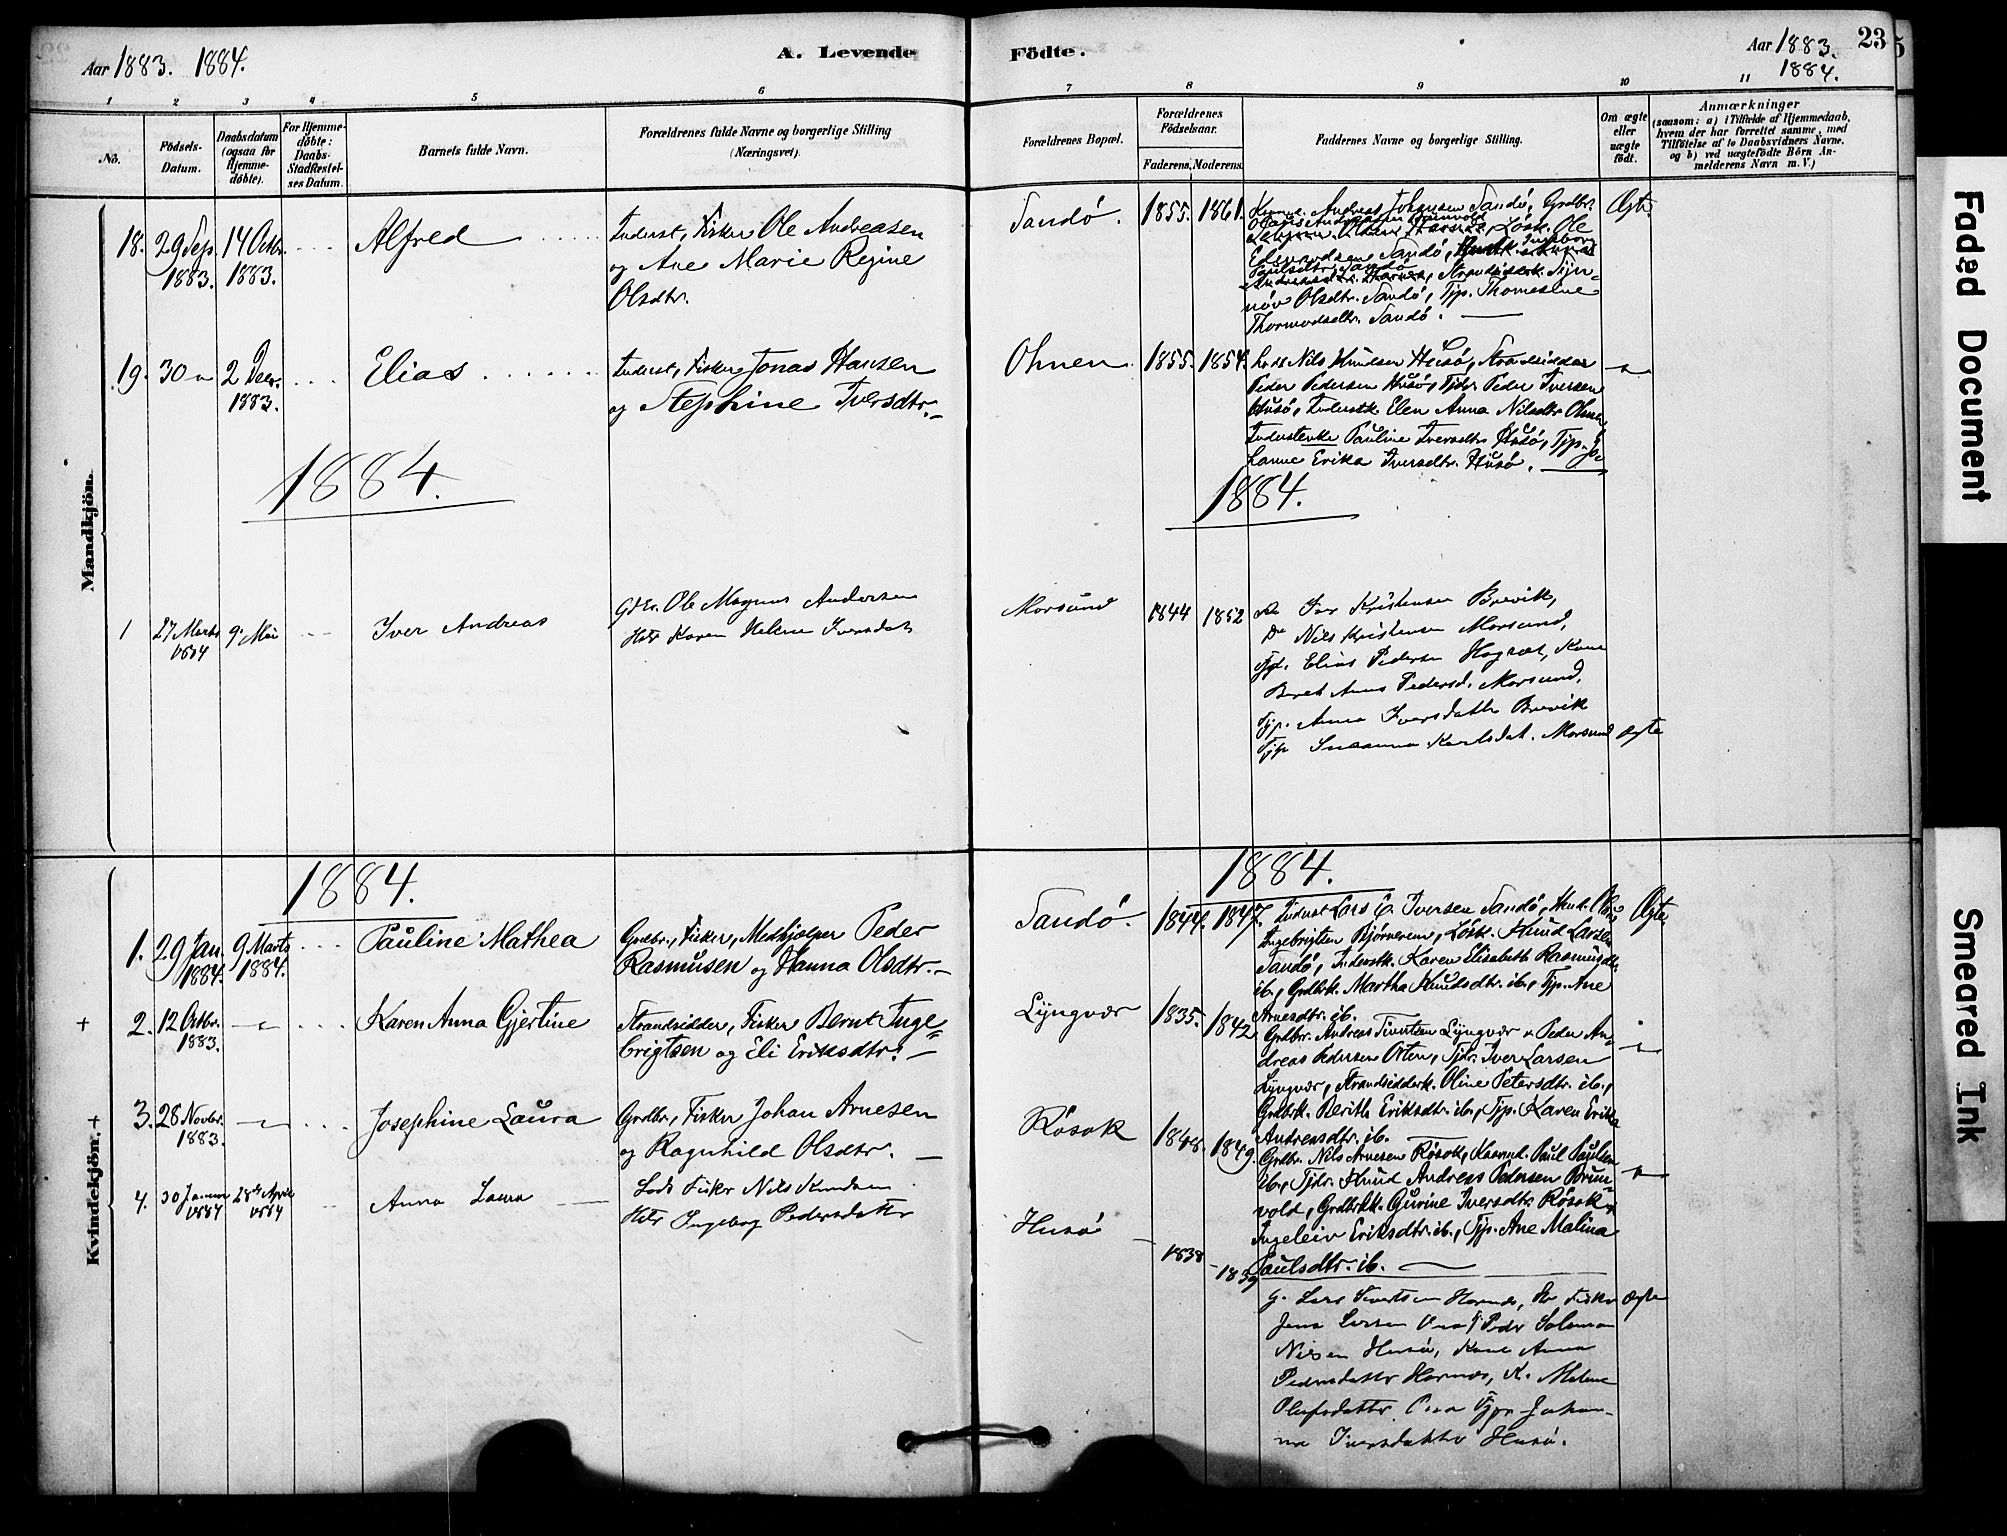 Aar 1883. 1884.
A. Levende
Födte.
Aar 1883. 23
1884.
1 2 3 4 5 6
7 8 9 10 11
No.
Födsels-
Datum.
Daabsdatum
(ogsaa for
Hjemme-
döbte).
For Hjemme-
döbte:
Daabs-
Stadfæstel-
ses Datum.
Barnets fulde Navn.
Forældrenes fulde Navne og borgerlige Stilling
(Næringsvei).
Forældrenes Bopæl.
Forældrenes
Födselsaar.
Faderens. Moderens.
Faddernes Navne og borgerlige Stilling.
Om ægte
eller
uægte
født.
Anmærkninger
(saasom: a) i Tilfælde af Hjemmedaab,
hvem der har forrettet samme, med
Tilföielse af to Daabsvidners Navne.
og b) ved uægtefödte Börn An-
melderens Navn m. V.)
Mandkjön.
18. 29 Sep. 1883. 14 Octbr. 1883. Alfred
Inderst, Fisker Ole Andreasen
og Ane Marie Regine
Olsdtr.
Sandö. 1855. 1861.
Andreas Johansen Sandö, Grdbr.
Edvardsen Sandö,
Paulsdtr. Sandö
növ Olsdtr. Sandö, Tjp. Thomesine
Thormodsdtr. Sandö.
Ægte
19. 30 " 2 Decr. 1883. Elias
Inderst, Fisker Jonas Hansen
og Stephine Iversdtr.
Ohnen 1855. 1854.
Lods Nils Knudsen Husö, Strandsidder
Peder Pedersen Husö, Tjdr. Peder Iversen
Husö, Inderstk. Elen Anna Nilsdtr. Ohnen
Inderstenke Pauline Iversdtr. Husö, Tjp. Jo-
hanne Erika Iversdtr. Husö.
1884.
1884.
1 27 Marts 1884 9. Mai Iver Andreas
Gdbr. Ole Magnus Andersen
Hstr Karen Helene Iversdat
Morsund 1844 1852
Iver Kristensen Brevik,
Do Nils Kristensen Morsund,
Elias Pedersen Hagset, Kone
Beret Anna Pedersd. Morsund,
Tjp. Anna Iversdatter Brevik
Tjp Susanna Karlsdat. Morsund ægte
Kvindekjön.
1884.
1884.
1. 29 Jan. 1884. 9 Marts 1884. Pauline Mathea
Grdbr., Fisker, Medhjælper Peder
Rasmusen og Hanna Olsdtr.
Sandö. 1844. 1847.
Inderst Lars C. Iversen Sandö,
Ingebrigtsen Bjørnerem, Løsk. Knud Larsen
Sandö, Inderstk. Karen Elisabeth Rasmusdtr.
ib., Grdbrk. Martha Knutsdtr. ib., Tjp. Ane
Arnesdtr. ib.
Ægte
+ 2. 12 Octbr. 1883. Karen Anna Gjertine
Strandsidder, Fisker Bernt Inge-
brigtsen og Eli Eriksdtr.
Lyngvær 1835. 1842
Grdbr. Andreas Sivertsen Lyngvær " Peder An-
dreas Pedersen Orten, Tjdr. Iver Larsen
Lyngvær, Strandsidderk. Oline Petersdtr. ib.,
Grdbrk. Berith Eriksdtr. ib., Tjp. Karen Erika
Andreasdtr. ib.
3. 28 Novbr. 1883. Josephine Laura
Grdbr., Fisker Johan Arnesen
og Ragnhild Olsdtr.
Rösok 1848. 1849.
Grdbr. Nils Arnesen Rösok, Kaarmd. Paul Paulsen
ib., Tjdr. Knud Andreas Pedersen Brun-
vold, Grdbrkk. Gurine Iversdtr. Rösok,
Ingeleiv Eriksdtr. ib., Tjp. Ane Malina
Paulsdtr. ib.
+ 4. 30 Januar 1884 28de April 1884 Anna Laura
Lods Fisker Nils Knudsen
Hstr Ingeborg Pedersdatter
Husö 1838 1839
G. Lars Sivertsen Harnes, Fisker
Jens Larsen Ona, Peder Salomon
Nilsen Husö, Kone Anna
Pedersdatter Harnes, K. Malene
Olufsdatter Ona Tjp. Johan-
na Iversdatter Husö.
ægte
Faded Document
Smeared Ink